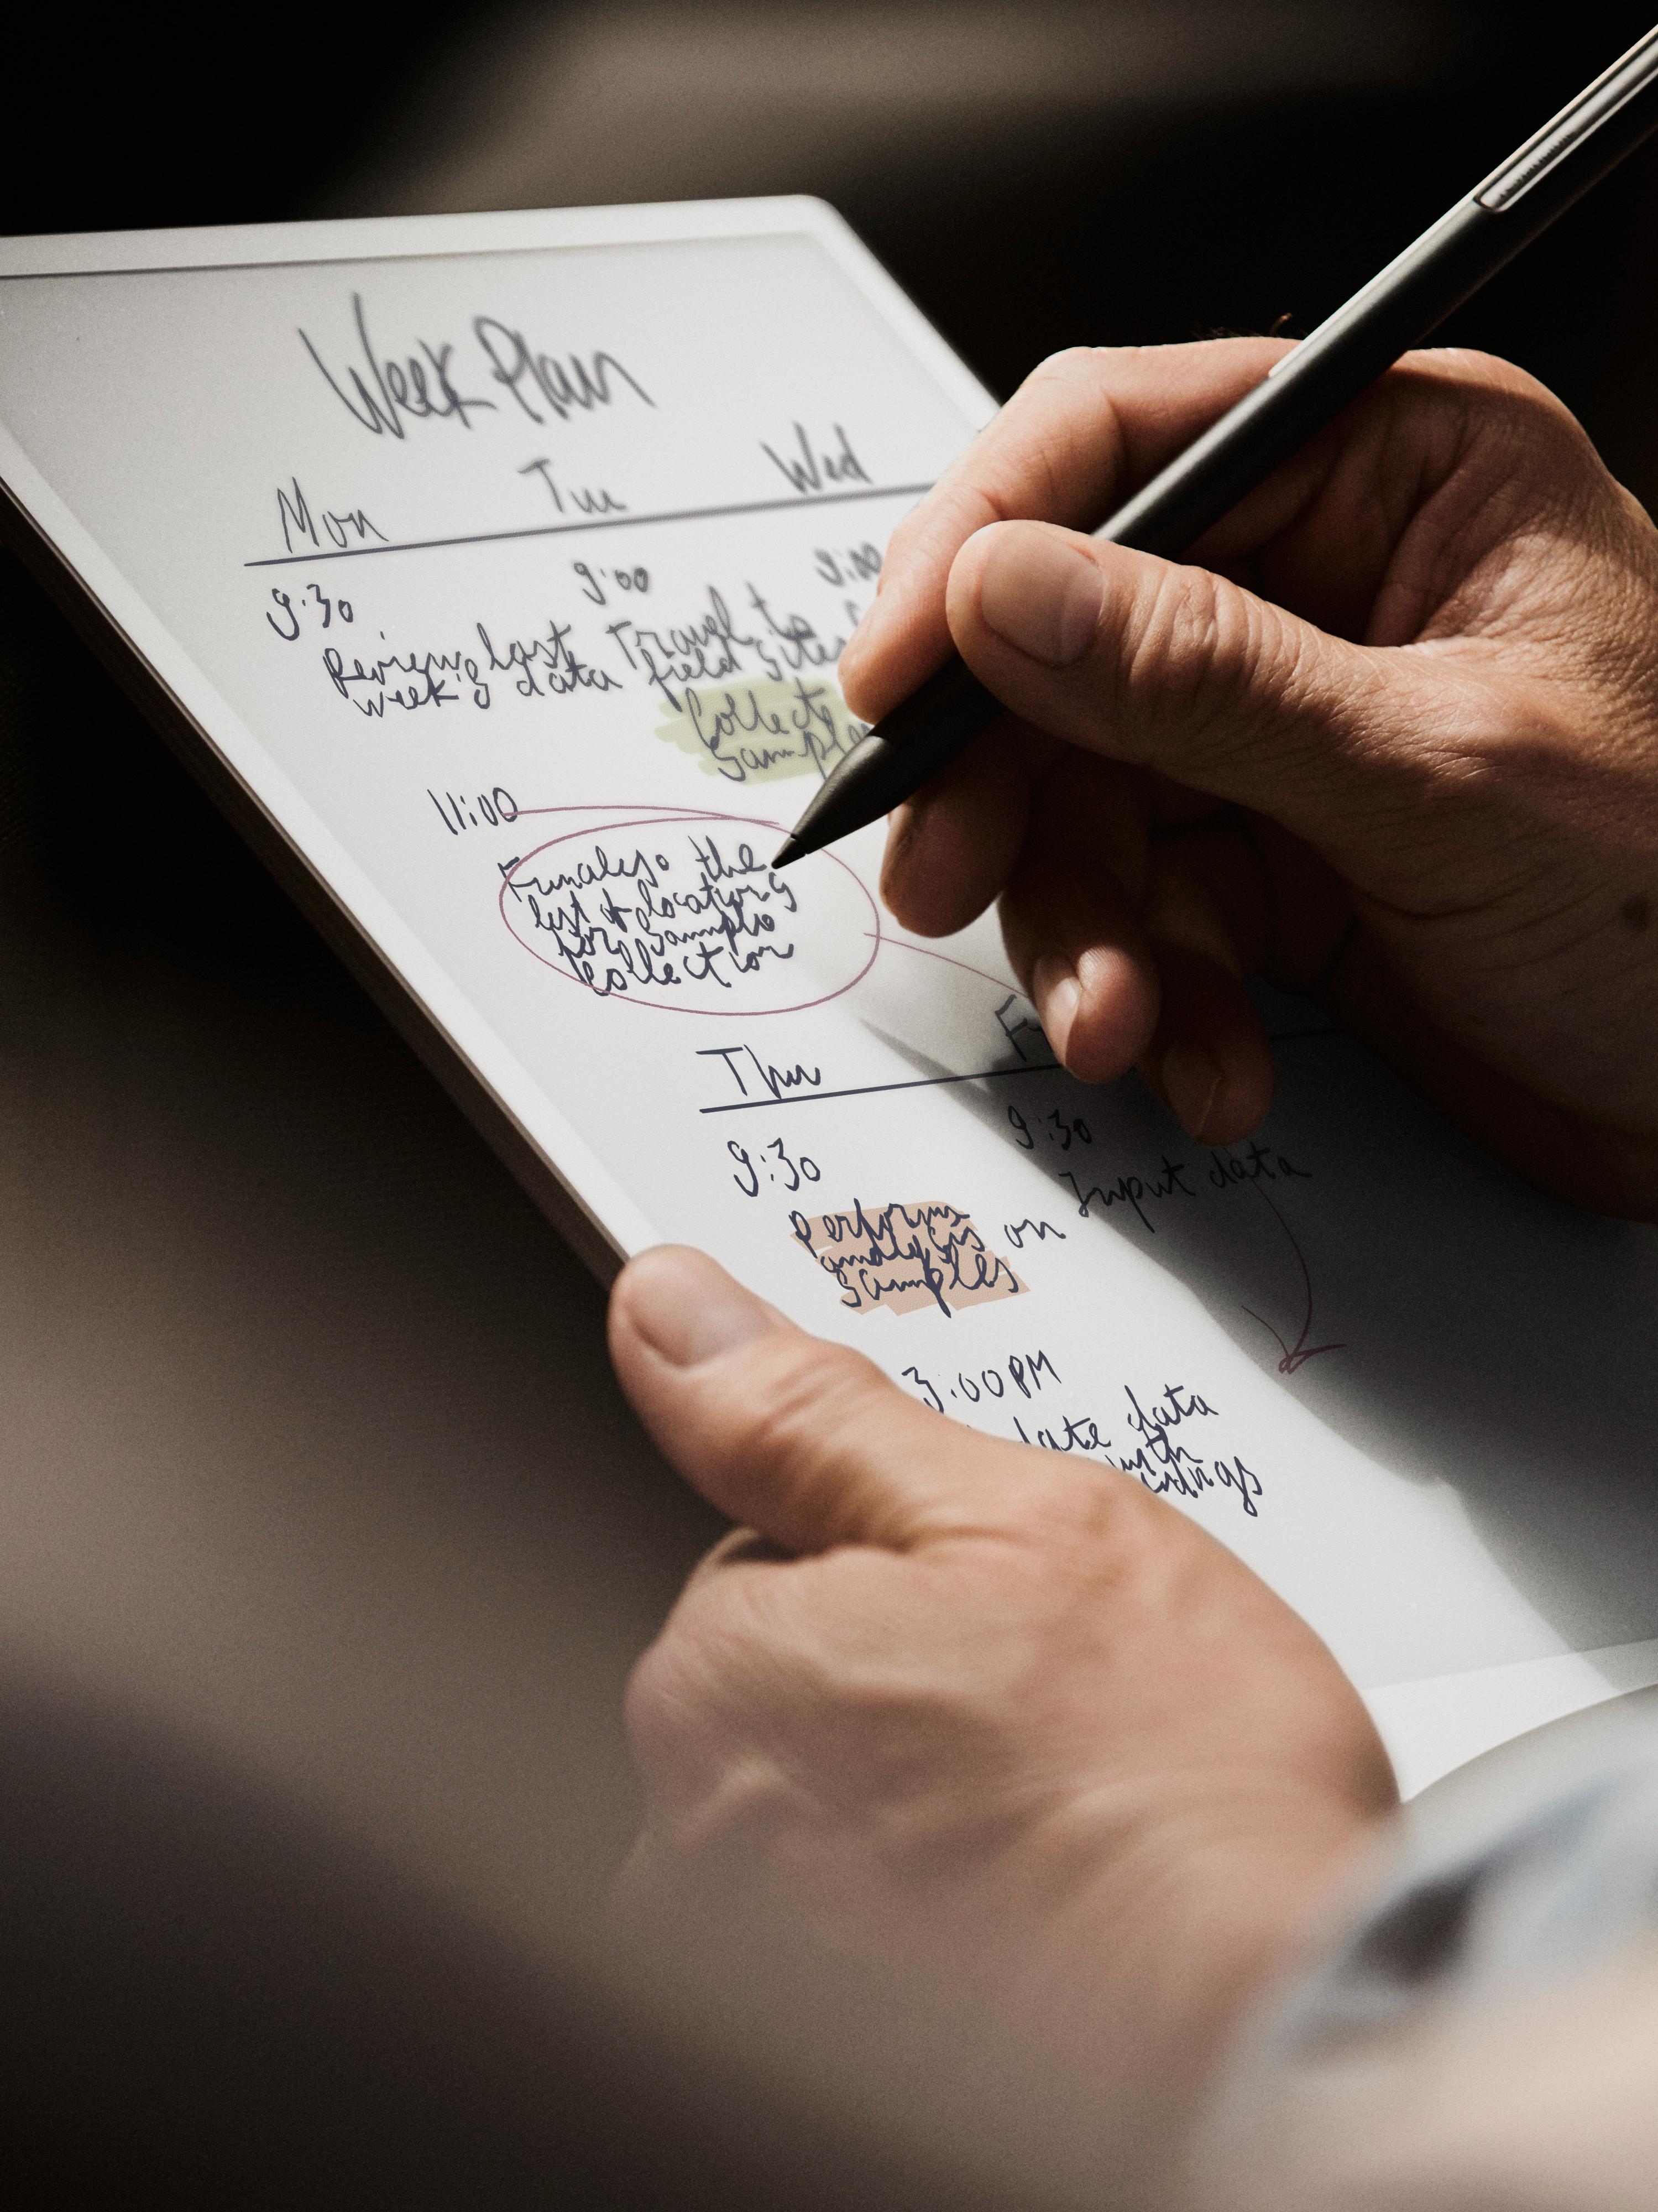 Week Plan
Mon Tue Wed
9:30
Review last
week's data
9:00
Travel to
field sites
Collect
samples
9:00
11:00
Finalise the
list of locations
for sample
collection
Thur
9:30
Perform
analysis on
samples
9:30
Input data
3:00PM
data
with